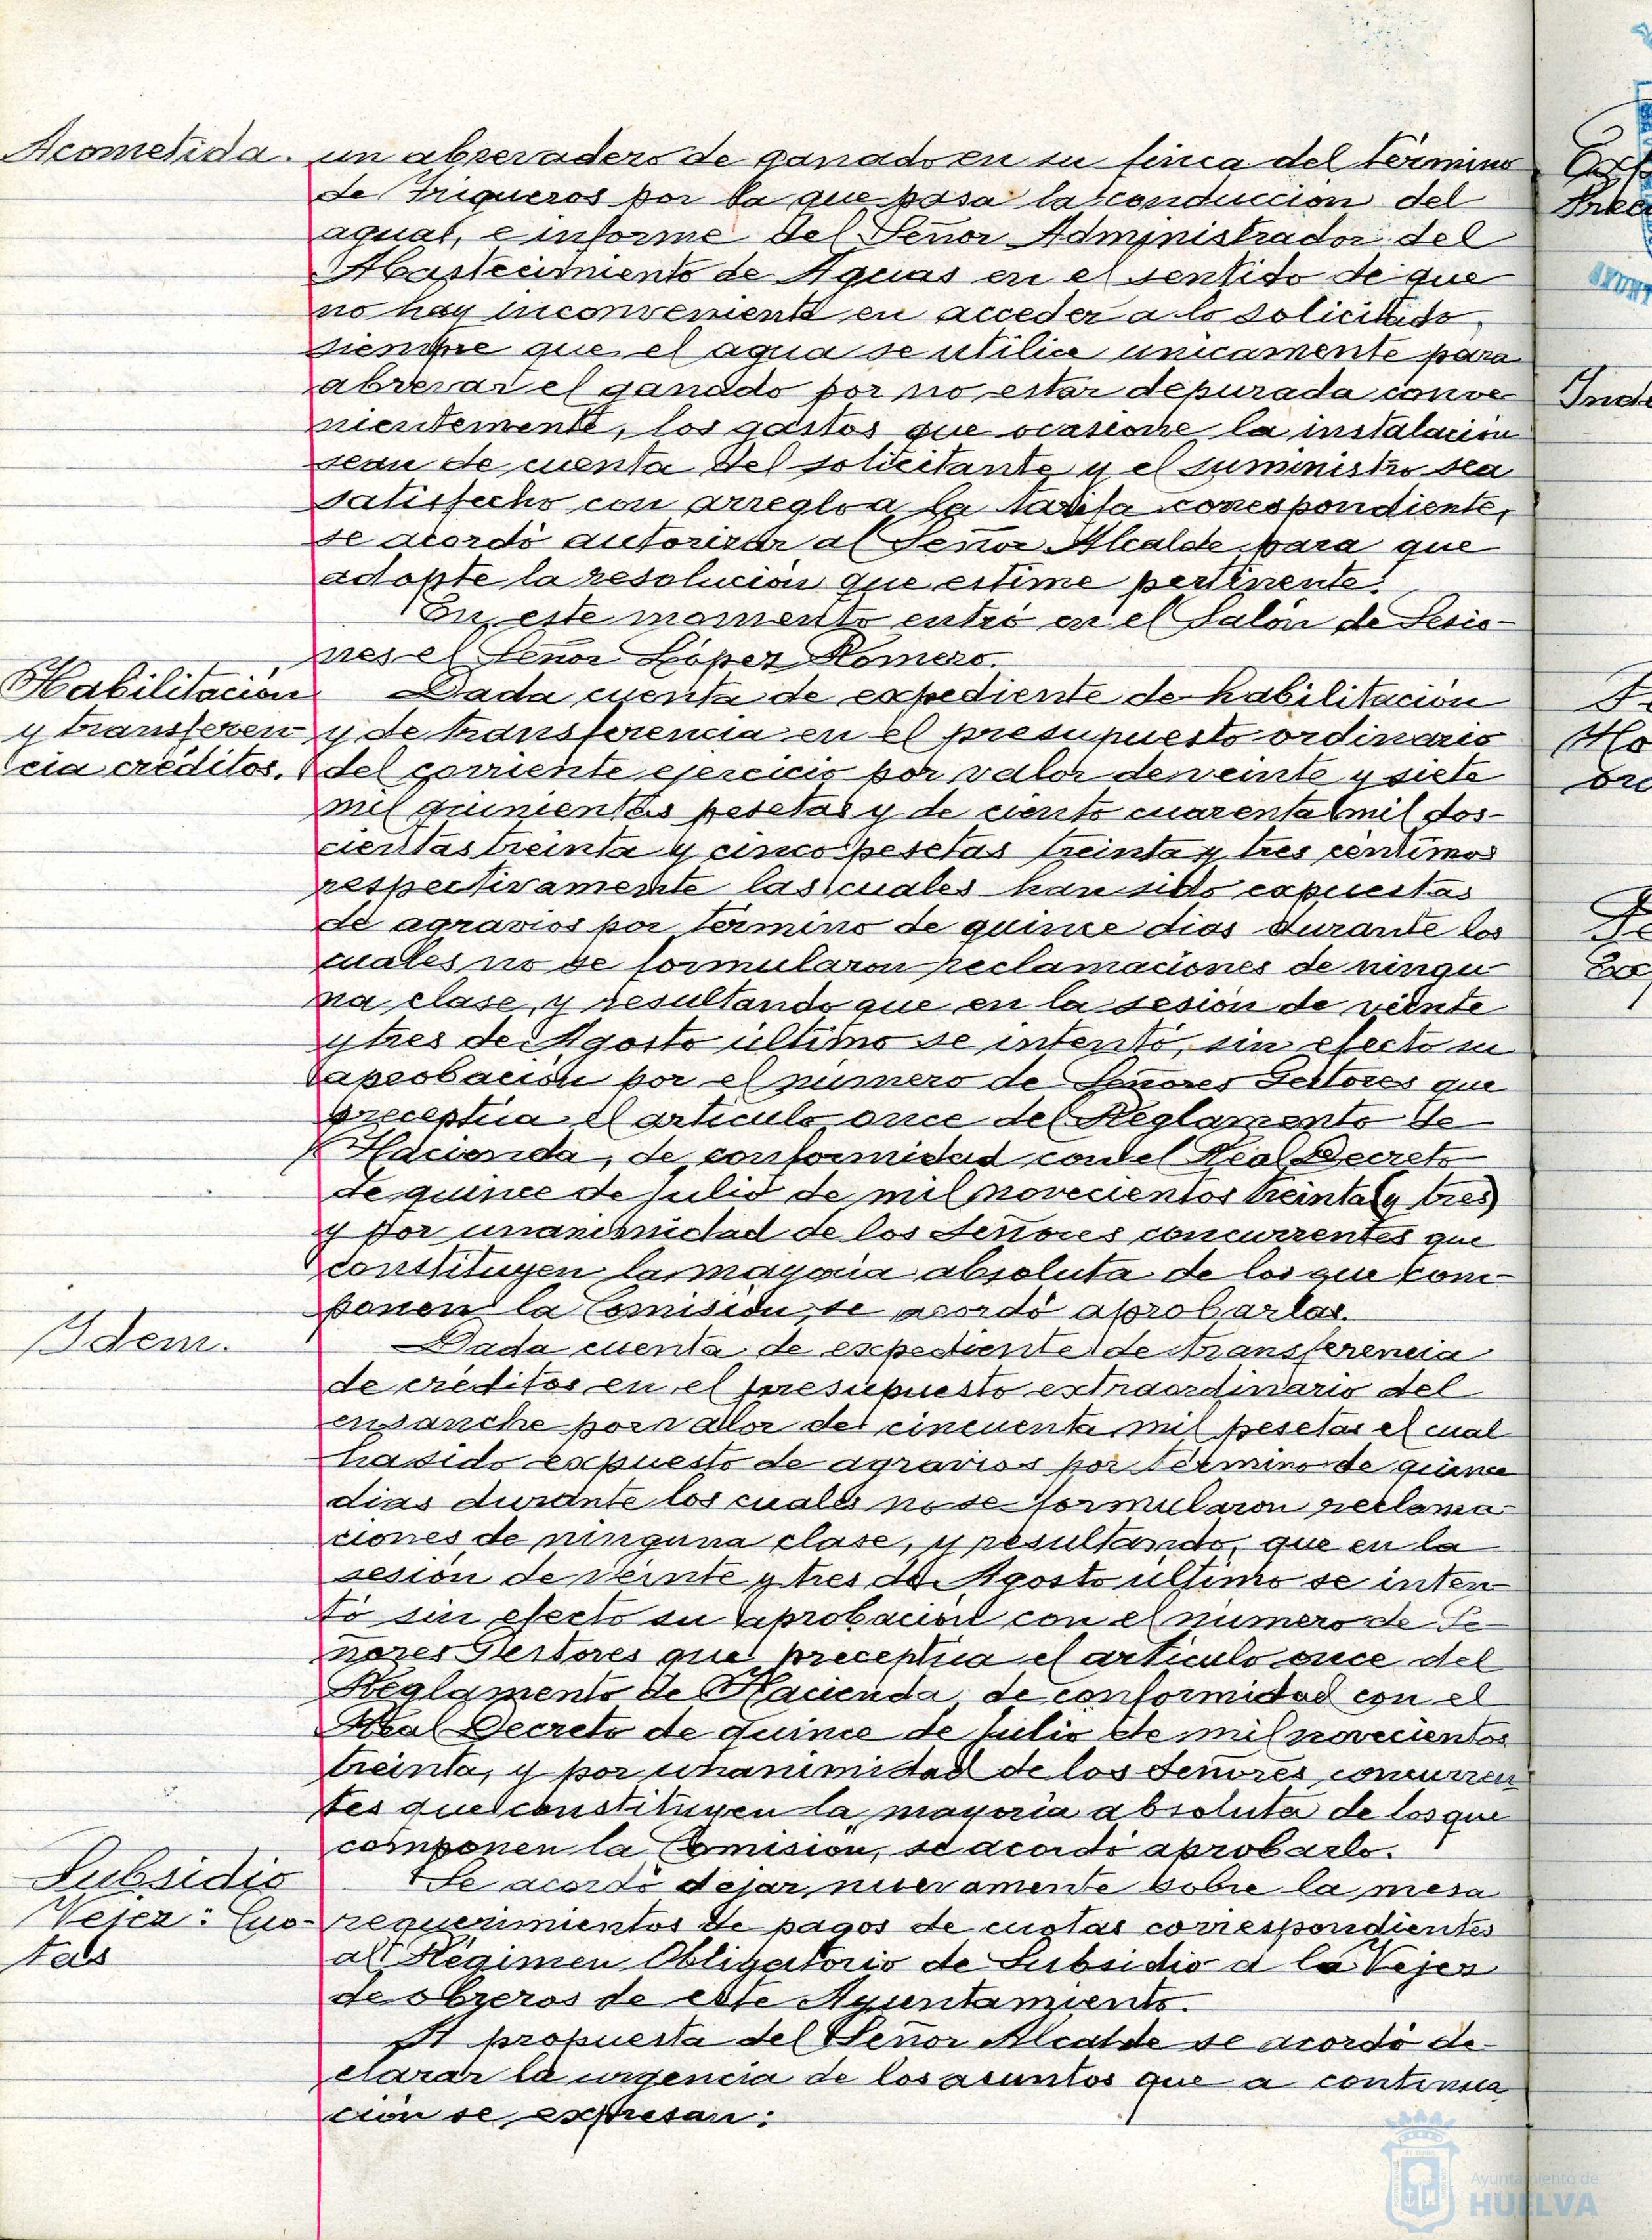 Acometida.
un abrevadero de ganado en su finca del término
de Trigueros por la que pasa la conduccion del
agua, e informe del Señor Administrador del
Abastecimiento de Aguas en el sentido de que
no hay inconveniente en acceder a lo solicitado
siempre que el agua se utilice unicamente para
abrevar el ganado por no estar depurada conve
nientemente, los gastos que ocasione la instalación
sean de cuenta del solicitante y el suministro sea
satisfecho con arreglo a la tarifa correspondiente,
se acordó autorizar al Señor Alcalde para que
adopte la resolución que estime pertinente.
En este momento entró en el Salón de Sesio-
nes el Señor López Romero.
Habilitación
y transferen
cia créditos.
Dada cuenta de expediente de habilitación
y de transferencia en el presupuesto ordinario
del corriente ejercicio por valor de veinte y siete
mil quinientas pesetas y de ciento cuarenta mil dos-
cientas treinta y cinco pesetas treinta y tres centimos
respectivamente las cuales han sido expuestas
de agravios por término de quince dias durante los
cuales no se formularon reclamaciones de ningu
na clase, y resultando que en la sesión de veinte
y tres de Agosto último se intentó, sin efecto su
aprobación por el número de Señores Gestores que
preceptúa el articulo once del Reglamento de
Hacienda, de conformidad con el Real Decreto
de quince de Julio de mil novecientos treinta y tres
y por unanimidad de los Señores concurrentes que
constituyen la mayoria absoluta de los que com-
ponen la Comisión, se acordó aprobarlas.
Idem.
Dada cuenta de expediente de transferencia
de créditos en el presupuesto extraordinario del
ensanche por valor de cincuenta mil pesetas el cual
ha sido expuesto de agravios por término de quince
dias durante los cuales no se formularon reclama-
ciones de ninguna clase, y resultando, que en la
sesión de veinte y tres de Agosto ultimo se inten
tó sin efecto su aprobación con el número de Se-
ñores Gestores que preceptúa el artículo once del
Reglamento de Hacienda, de conformidad con el
Real Decreto de quince de Julio de mil novecientos
treinta, y por unanimidad de los Señores concurren
tes que constituyen la mayoría absoluta de los que
componen la Comisión, se acordó aprobarlo.
Subsidio
Vejez: Cuo-
tas
Se acordó dejar nuevamente sobre la mesa
requerimientos de pagos de cuotas correspondientes
al Régimen Obligatorio de Subsidio a la Vejez
de obreros de este Ayuntamiento.
A propuesta del Señor Alcalde se acordó de-
clarar la urgencia de los asuntos que a continua
ción se expresan:
Ayuntamiento de
HUELVA